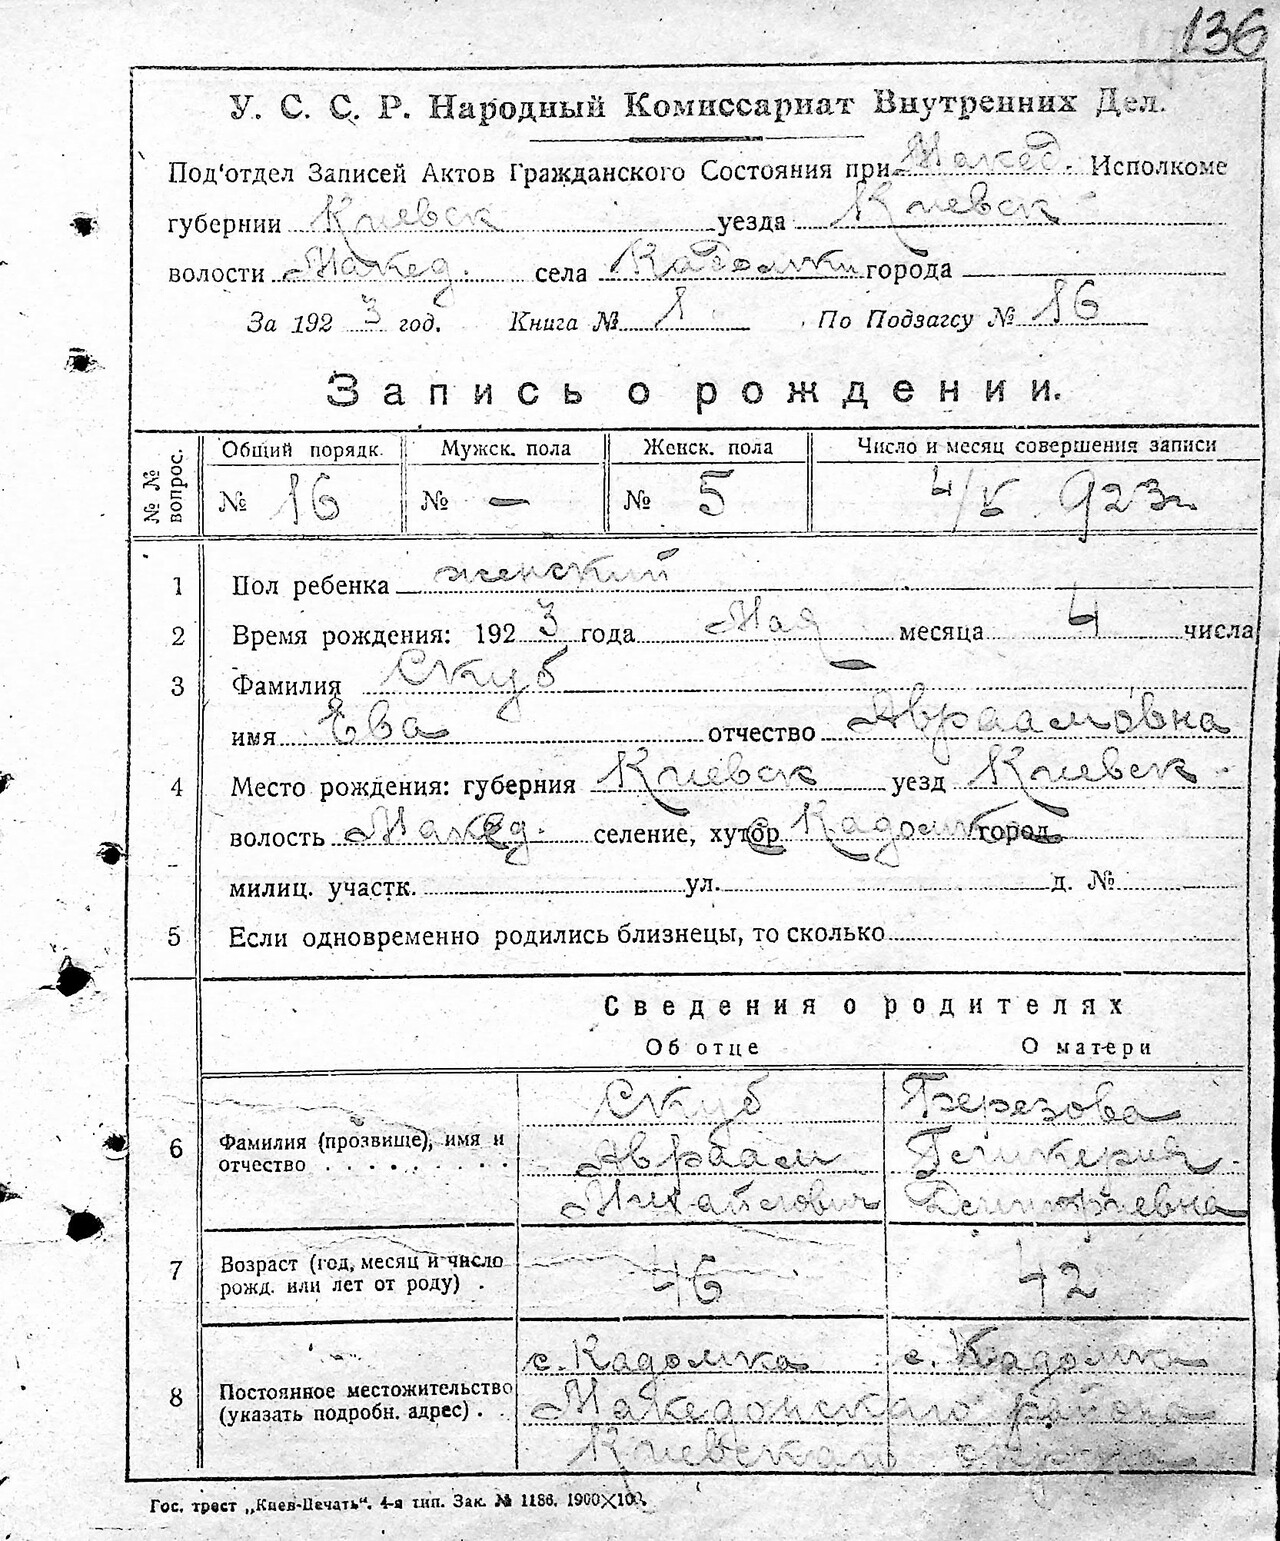 136
У. С. С. Р. Народный Комиссариат Внутренних Дел.
Под'отдел Записей Актов Гражданского Состояния при Макед. Исполкоме
губернии Киевск уезда Киевск
волости Макед. села Кадомки города
За 1923 год. Книга № 1 По Подзагсу № 16
Запись о рождении.
№ № вопрос. Общий порядк. Мужск. пола Женск. пола Число и месяц совершения записи
№ 16 № — № 5 4/V 923 г.
1 Пол ребенка женский
2 Время рождения: 1923 года Мая месяца 4 числа
3 Фамилия Скуб
имя Ева отчество Авраамовна
4 Место рождения: губерния Киевск уезд Киевск
волость Макед. селение, хутор с. Кадомка город
милиц. участк. ул. д. №
5 Если одновременно родились близнецы, то сколько
Сведения о родителях
Об отце О матери
Скуб Березова
6 Фамилия (прозвище), имя и Авраам Гликерия
отчество . . . . . . . . . Михайлович Дмитриевна
7 Возраст (год, месяц и число
рожд. или лет от роду) . 46 42
с. Кадомка с. Кадомка
8 Постоянное местожительство Македонского района
(указать подробн. адрес) . . Киевского округа
Гос. трест „Киев-Печать“. 4-я тип. Зак. № 1186. 1900×100.